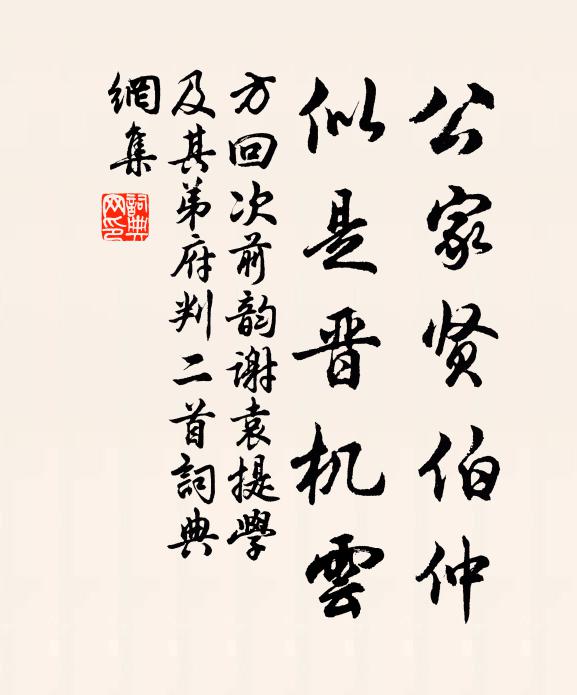 公家贤伯仲
似是晋机雲
方回次前韵谢袁提學
及其弟府判二首詞典
網集
詞典网印